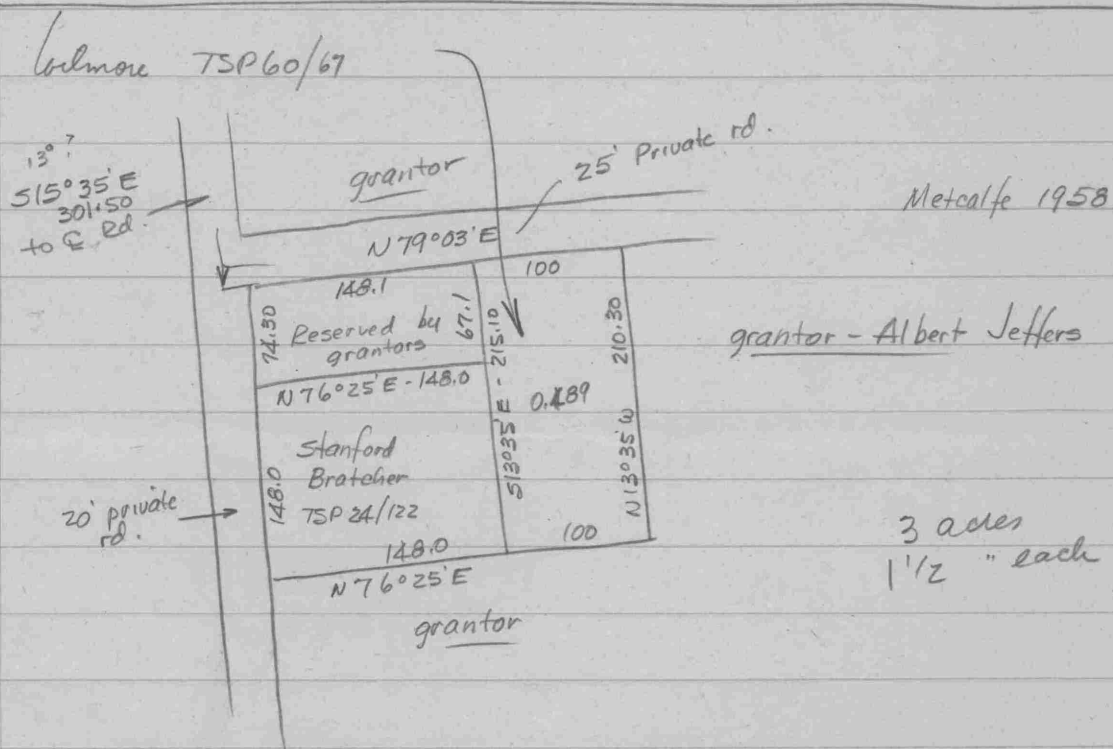 TSP 60/67
13° ?
S15°35'E
301.50
to ℄ Rd.
grantor
25' Private rd.
Metcalfe 1958
N 79°03'E
148.1
100
74.30
Reserved by
grantors
67.1
S13°35'E - 215.10
210.30
grantor - Albert Jeffers
N 76°25'E - 148.0
0.489
N13°35'W
Stanford
Bratcher
TSP 24/122
148.0
20' private
rd.
148.0
100
N 76°25'E
3 acres
1 1/2 " each
grantor